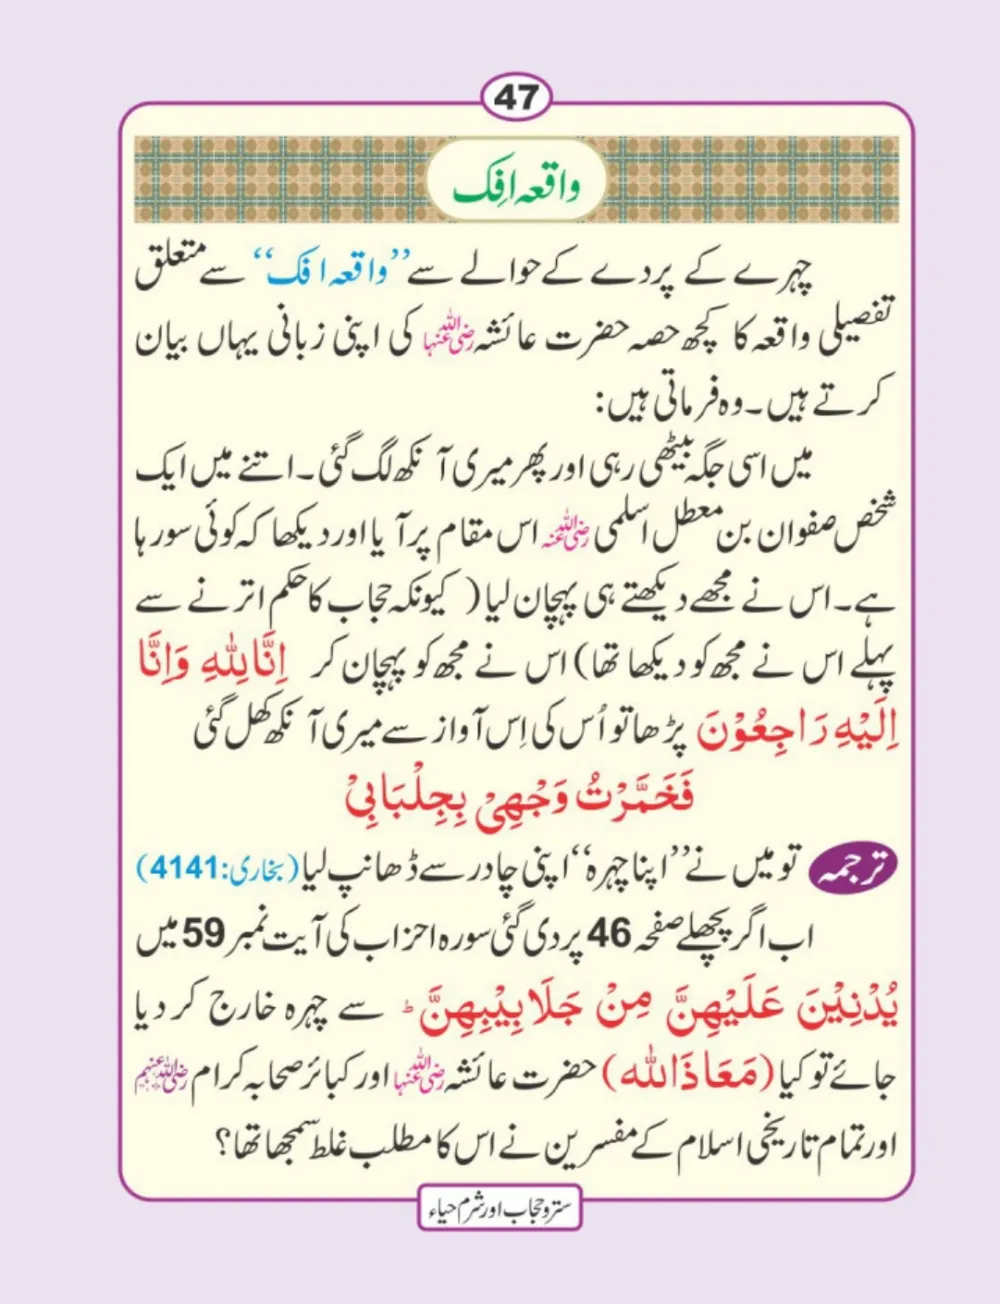 47
واقعہ افک
چہرے کے پردے کے حوالے سے ’’واقعہ افک‘‘ سے متعلق
تفصیلی واقعہ کا کچھ حصہ حضرت عائشہ رضی اللہ عنہا کی اپنی زبانی یہاں بیان
کرتے ہیں۔ وہ فرماتی ہیں:
میں اسی جگہ بیٹھی رہی اور پھر میری آنکھ لگ گئی۔ اتنے میں ایک
شخص صفوان بن معطل اسلمی رضی اللہ عنہ اس مقام پر آیا اور دیکھا کہ کوئی سو رہا
ہے۔ اس نے مجھے دیکھتے ہی پہچان لیا ( کیونکہ حجاب کا حکم اترنے سے
پہلے اس نے مجھ کو دیکھا تھا) اس نے مجھ کو پہچان کر اِنَّالِلّٰہِ وَاِنَّا
اِلَیْہِ رَاجِعُوْنَ پڑھا تو اُس کی اِس آواز سے میری آنکھ کھل گئی
فَخَمَّرْتُ وَجْھِیْ بِجِلْبَابِیْ
ترجمہ تو میں نے ’’اپنا چہرہ‘‘ اپنی چادر سے ڈھانپ لیا (بخاری: 4141)
اب اگر پچھلے صفحہ 46 پر دی گئی سورہ احزاب کی آیت نمبر 59 میں
یُدْنِیْنَ عَلَیْھِنَّ مِنْ جَلَابِیْبِھِنَّ ؕ سے چہرہ خارج کر دیا
جائے تو کیا (مَعَاذَاللّٰہ) حضرت عائشہ رضی اللہ عنہا اور کبائر صحابہ کرام رضی اللہ عنہم
اور تمام تاریخی اسلام کے مفسرین نے اس کا مطلب غلط سمجھا تھا؟
ستر و حجاب اور شرم حیاء